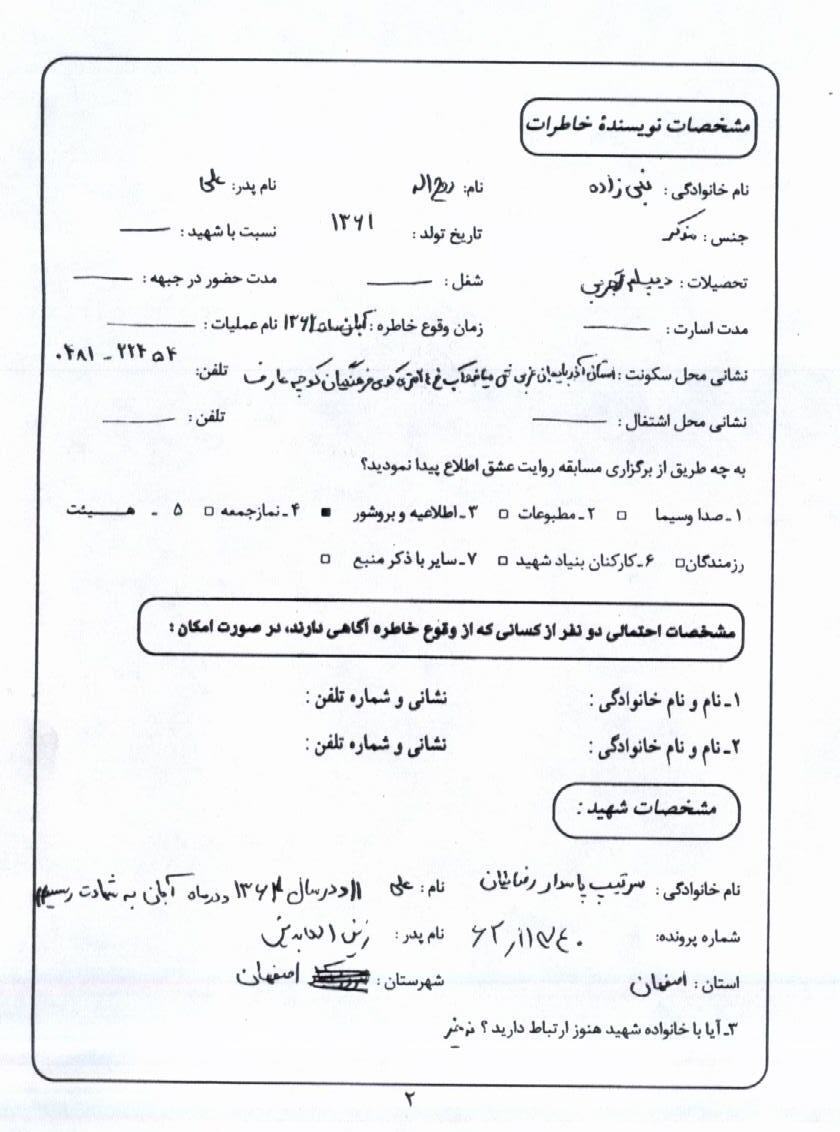 مشخصات نویسندهٔ خاطرات
نام خانوادگی : نبی زاده نام: روح اله نام پدر: علی
جنس : مذکر تاریخ تولد : ۱۳۶۱ نسبت با شهید : ——
تحصیلات : دیپلم تجربی شغل : —— مدت حضور در جبهه : ——
مدت اسارت : —— زمان وقوع خاطره : آبان سال ۱۳۶۴ نام عملیات : ——
نشانی محل سکونت : استان آذربایجان غربی میاندوآب خ ۱۴ متری کوی فرهنگیان کوچه عارف تلفن: ۰۴۸۱ - ۲۲۴۵۴
نشانی محل اشتغال : —— تلفن : ——
به چه طریق از برگزاری مسابقه روایت عشق اطلاع پیدا نمودید؟
۱ـ صدا وسیما □ ۲ـ مطبوعات □ ۳ـ اطلاعیه و بروشور ■ ۴ـ نمازجمعه □ ۵ ـ هـــیئت
رزمندگان□ ۶ـ کارکنان بنیاد شهید □ ۷ـ سایر با ذکر منبع □
مشخصات احتمالی دو نفر از کسانی که از وقوع خاطره آگاهی دارند، در صورت امکان :
۱ـ نام و نام خانوادگی : نشانی و شماره تلفن :
۲ـ نام و نام خانوادگی : نشانی و شماره تلفن :
مشخصات شهید :
نام خانوادگی : سرتیپ پاسدار رضائیان نام : علی او در سال ۱۳۶۴ در ماه آبان به شهادت رسید
شماره پرونده: نام پدر : زین العابدین
استان : اصفهان شهرستان : اصفهان
۳ـ آیا با خانواده شهید هنوز ارتباط دارید ؟ نخیر
۲